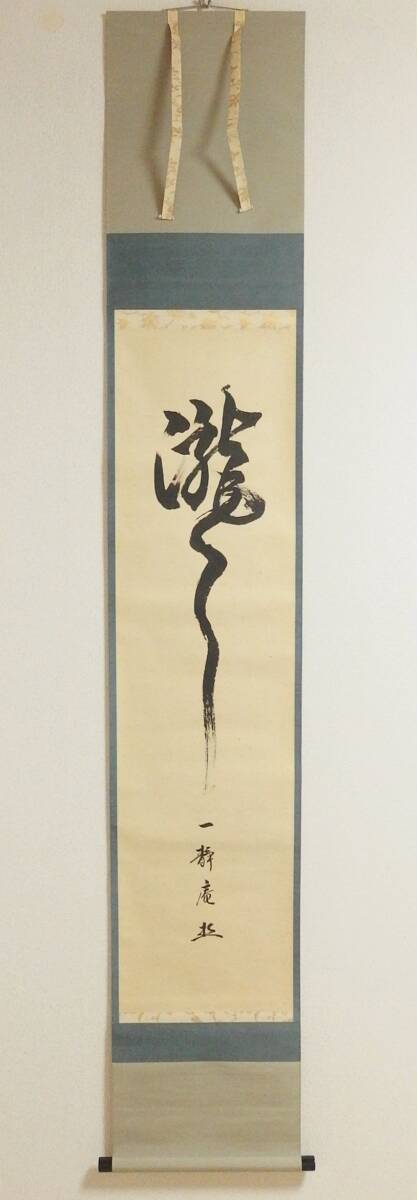 瀧
一静庵